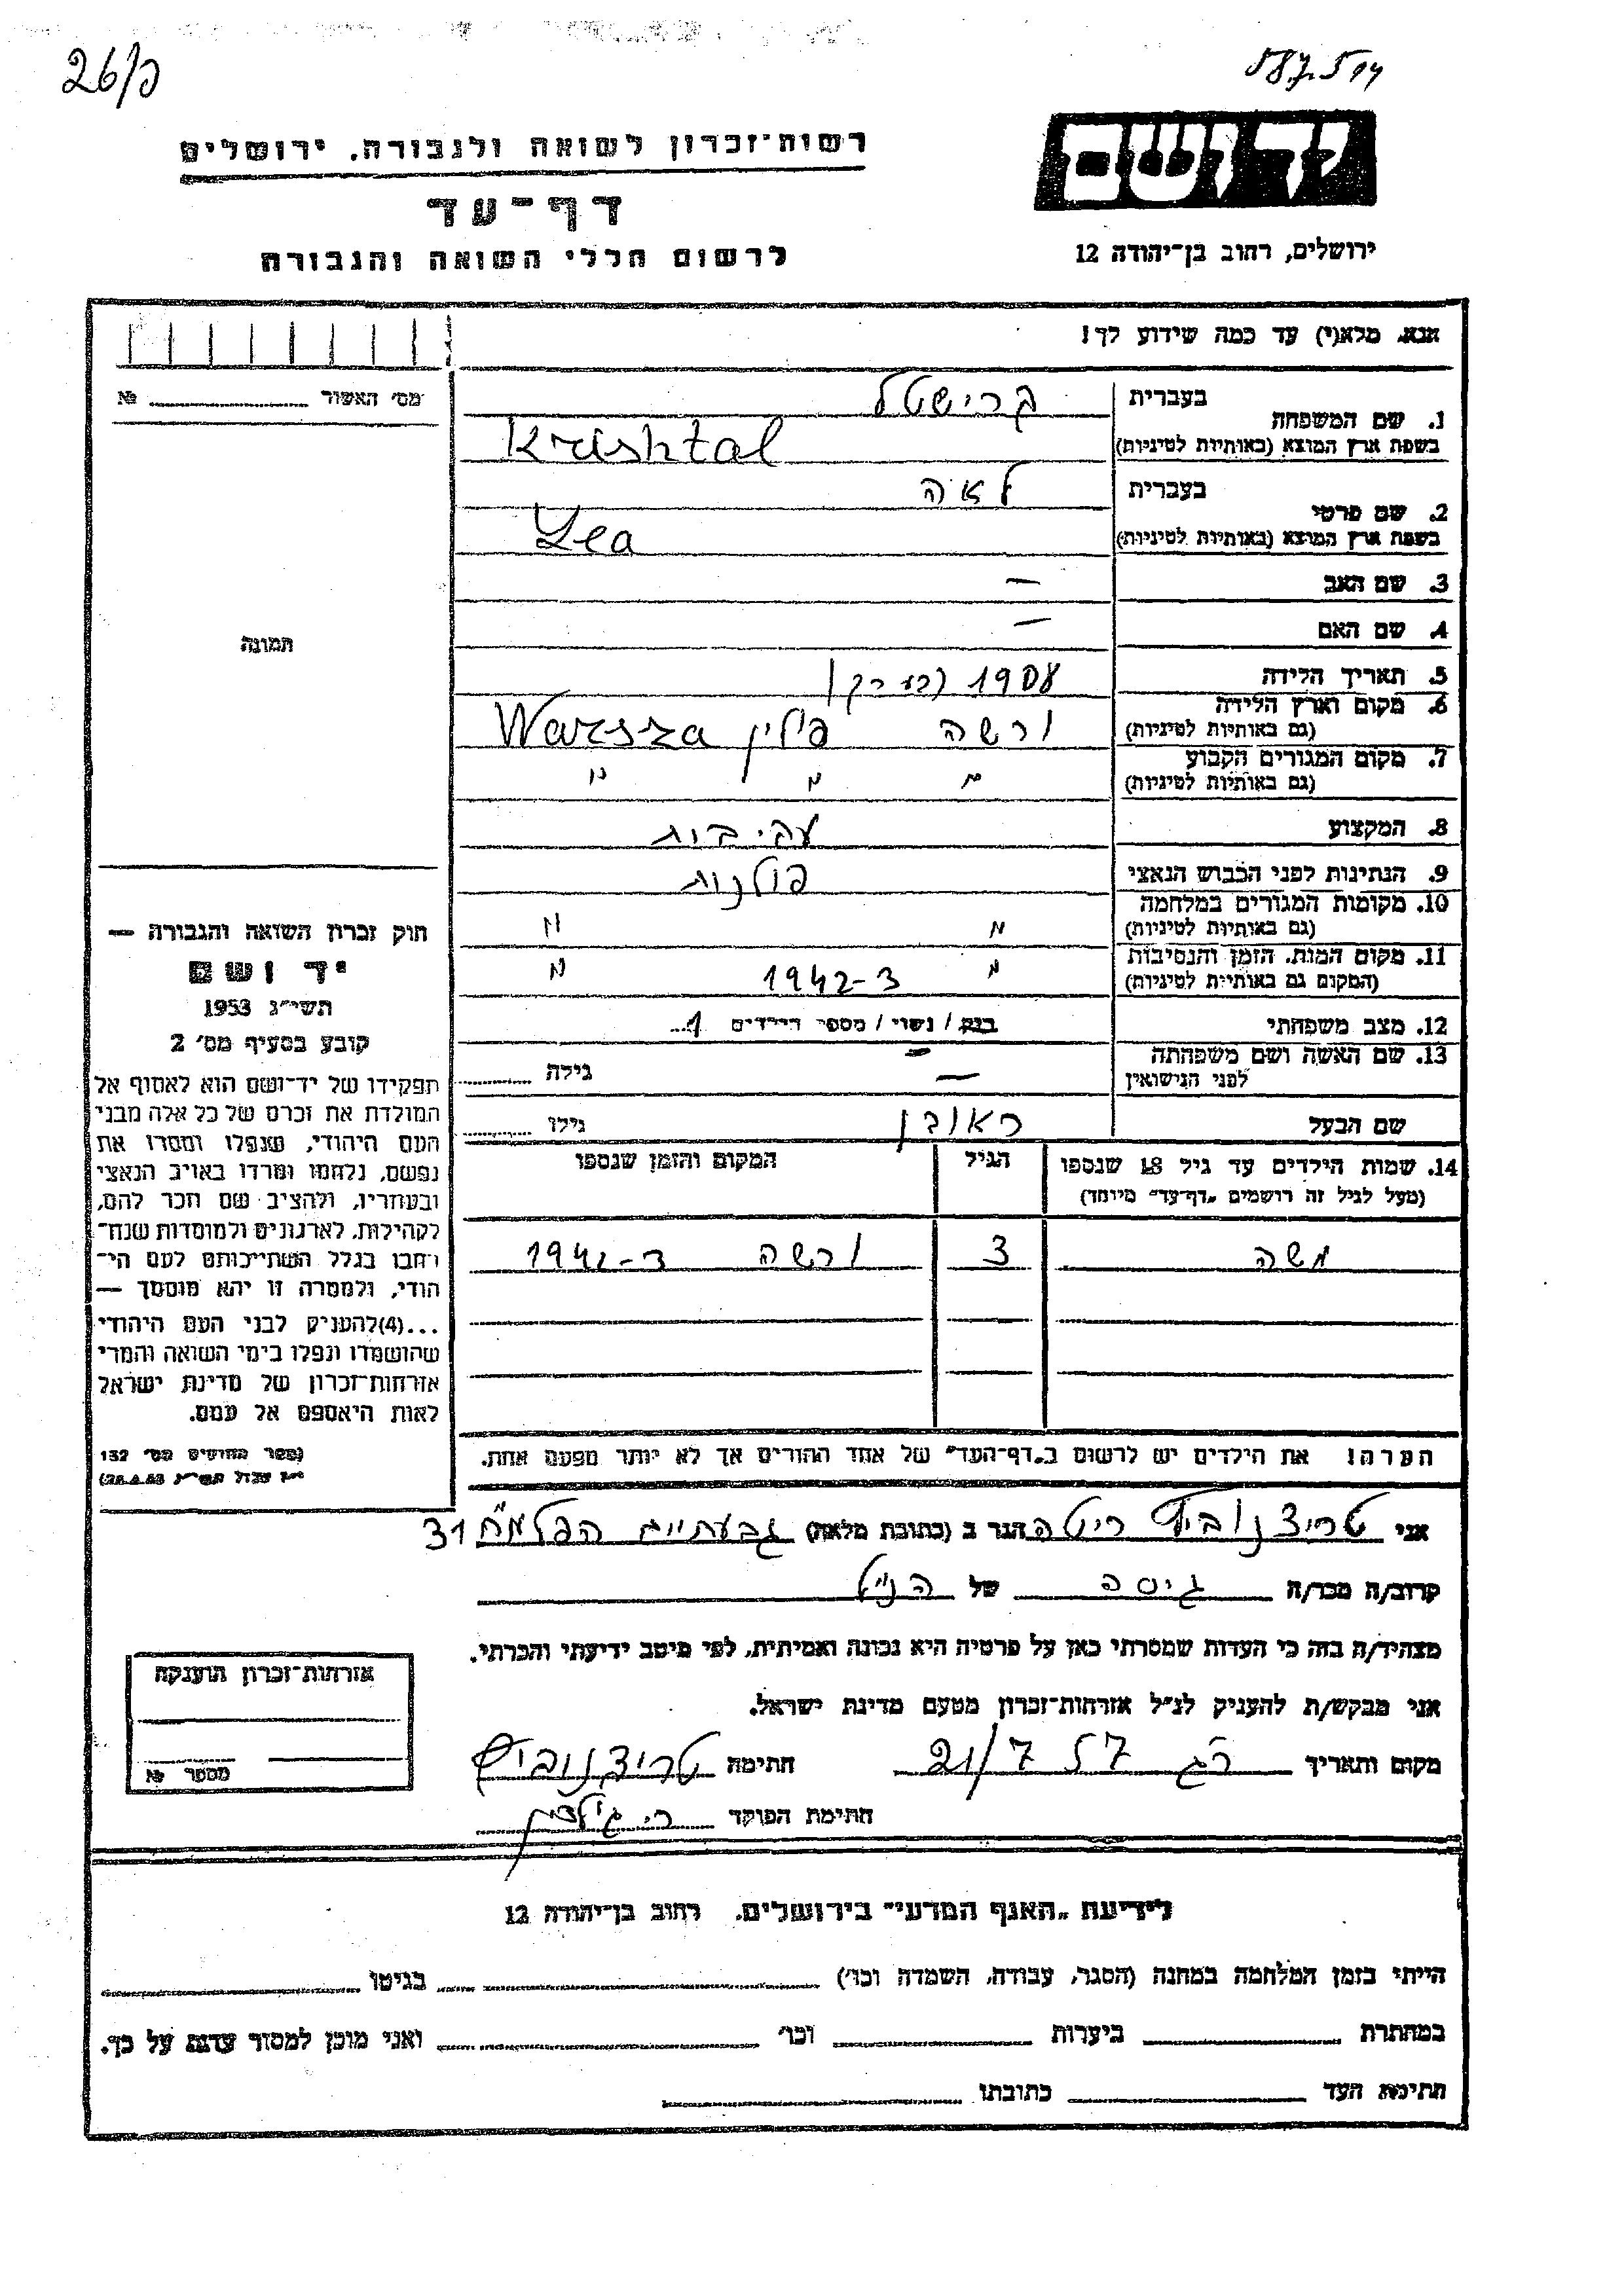 26/ק
רשות־זכרון לשואה ולגבורה, ירושלים
דף־עד
לרשום חללי השואה והגבורה
יד ושם
ירושלים, רחוב בן־יהודה 12
אנא, מלא(י) עד כמה שידוע לך!
מס׳ האשור № 
1. שם המשפחה
בעברית קרישטל
בשפת ארץ המוצא (באותיות לטיניות) Krishtal
2. שם פרטי
בעברית לאה
בשפת ארץ המוצא (באותיות לטיניות) Lea
3. שם האב —
4. שם האם —
תמונה
5. תאריך הלידה 1908 (בערך)
6. מקום וארץ הלידה ורשה פולין Warsza
(גם באותיות לטיניות)
7. מקום המגורים הקבוע
(גם באותיות לטיניות) " " "
8. המקצוע עקרבית
9. הנתינות לפני הכבוש הנאצי פולנית
10. מקומות המגורים במלחמה
(גם באותיות לטיניות) " "
11. מקום המות, הזמן והנסיבות
(המקום גם באותיות לטיניות) " 1942-3 "
12. מצב משפחתי רווק / נשוי / מספר הילדים 1
13. שם האשה ושם משפחתה —
לפני הנישואין — גילה
שם הבעל ראובן גילו
14. שמות הילדים עד גיל 18 שנספו הגיל המקום והזמן שנספו
(מעל לגיל זה רושמים „דף־עד״ מיוחד)
משה 3 ורשה 1942-3
הערה! את הילדים יש לרשום ב„דף־העד״ של אחד ההורים אך לא יותר מפעם אחת.
חוק זכרון השואה והגבורה —
יד ושם
תשי״ג 1953
קובע בסעיף מס׳ 2
תפקידו של יד־ושם הוא לאסוף אל
המולדת את זכרם של כל אלה מבני
העם היהודי, שנפלו ומסרו את
נפשם, נלחמו ומרדו באויב הנאצי
ובעוזריו, ולהציב שם וזכר להם,
לקהילות, לארגונים ולמוסדות שנח־
רבו בגלל השתייכותם לעם הי־
הודי, ולמטרה זו יהא מוסמך —
...(4)להעניק לבני העם היהודי
שהושמדו ונפלו בימי השואה והמרי
אזרחות־זכרון של מדינת ישראל
לאות היאספם אל עמם.
(ספר החוקים מס׳ 132
י״ז אלול תשי״ג 28.8.53)
אני ריטה הגר ב (כתובת מלאה) גבעתיים הפלמ״ח 31
קרוב/ה מכר/ה גיסה של הנ״ל
מצהיר/ה בזה כי העדות שמסרתי כאן על פרטיה היא נכונה ואמיתית, לפי מיטב ידיעתי והכרתי.
אני מבקש/ת להעניק לנ״ל אזרחות־זכרון מטעם מדינת ישראל.
מקום ותאריך רג 21/7 57 חתימה
חתימת הפוקד
אזרחות־זכרון הוענקה
מספר №
לידיעת „האגף המדעי״ בירושלים, רחוב בן־יהודה 12
הייתי בזמן המלחמה במחנה (הסגר, עבודה, השמדה וכו׳) בגיטו
במחתרת ביערות וכו׳ ואני מוכן למסור עדות על כך.
חתימת העד כתובתו